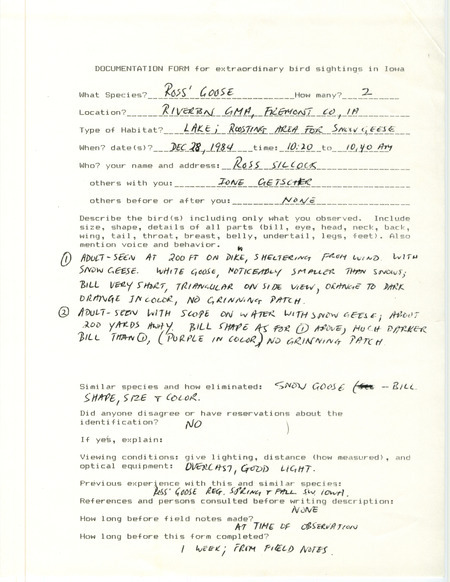 DOCUMENTATION FORM for extraordinary bird sightings in Iowa
What Species? ROSS' GOOSE How many? 2
Location? RIVERTON GMA, FREMONT CO, IA
Type of Habitat? LAKE; ROOSTING AREA FOR SNOW GEESE
When? date(s)? DEC 28, 1984 time: 10:20 to 10,40 AM
Who? your name and address: ROSS SILCOCK
others with you: IONE GETSCHER
others before or after you: NONE
Describe the bird(s) including only what you observed. Include
size, shape, details of all parts (bill, eye, head, neck, back,
wing, tail, throat, breast, belly, undertail, legs, feet). Also
mention voice and behavior.
① ADULT-SEEN AT 200 FT ON DIKE, SHELTERING FROM WIND WITH
SNOW GEESE. WHITE GOOSE, NOTICEABLY SMALLER THAN SNOWS;
BILL VERY SHORT, TRIANGULAR ON SIDE VIEW, ORANGE TO DARK
ORANGE IN COLOR, NO GRINNING PATCH.
② ADULT-SEEN WITH SCOPE ON WATER WITH SNOW GEESE; ABOUT
200 YARDS AWAY. BILL SHAPE AS FOR ① ABOVE; MUCH DARKER
BILL THAN ①, (PURPLE IN COLOR) NO GRINNING PATCH
Similar species and how eliminated: SNOW GOOSE ( - BILL
SHAPE, SIZE & COLOR.
Did anyone disagree or have reservations about the
identification? NO
If yes, explain:
Viewing conditions: give lighting, distance (how measured), and
optical equipment: OVERCAST, GOOD LIGHT.
Previous experience with this and similar species:
ROSS' GOOSE REG. SPRING & FALL SW IOWA.
References and persons consulted before writing description:
NONE
How long before field notes made?
AT TIME OF OBSERVATION
How long before this form completed?
1 WEEK; FROM FIELD NOTES.